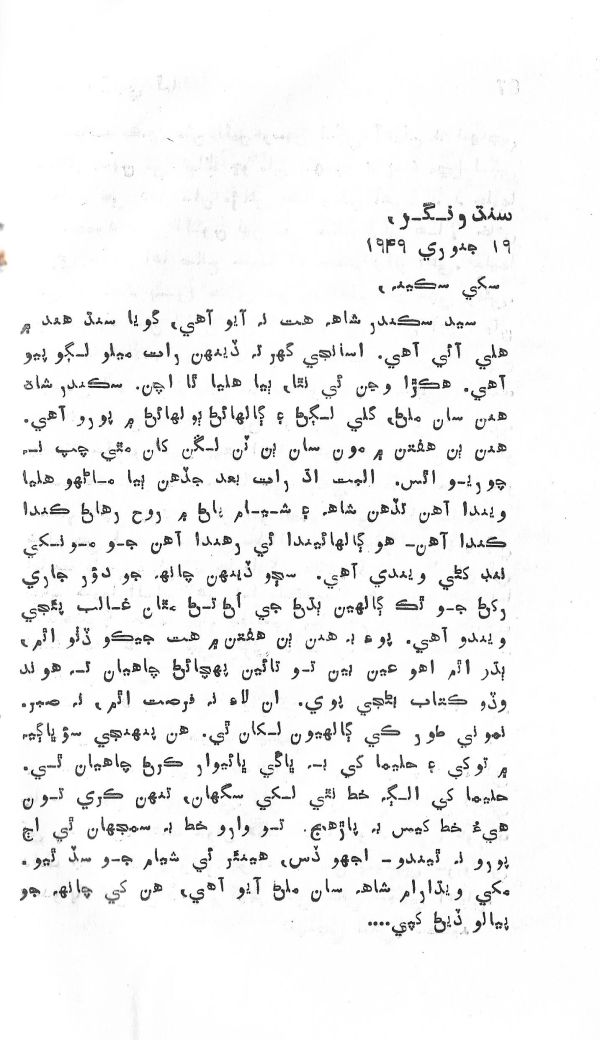 سنڌ ونگو،
۱۹ جنوري ۱۹۴۹
سکي سڪينه،
سيد سڪندر شاهه هت نه آيو آهي، گويا سنڌ هند ۾
هلي آئي آهي. اسانجي گهر ته ڏينهن رات ميلو لڳو پيو
آهي. هڪڙا وڃن ئي نٿا، ٻيا هليا ٿا اچن. سڪندر شاهه
هنن سان ملڻ، گلي لڳڻ ۽ ڳالهائڻ ٻولهائڻ ۾ پورو آهي.
هنن ٻن هفتن ۾ مون سان ٻن ٽن لڱن کان مٿي چپ نه
چوريو اٿس. البت اڌ رات بعد جڏهن ٻيا ماڻهو هليا
ويندا آهن تڏهن شاهه ۽ شيام پاڻ ۾ روح رهاڻ ڪندا
ڪندا آهن- هو ڳالهائيندا ئي رهندا آهن جو مونکي
ننڊ کڻي ويندي آهي. سڄو ڏينهن چانهه جو دؤر جاري
رکڻ جو ٿڪ ڳالهين ٻڌڻ جي اڻ تڻ مٿان غالب پئجي
ويندو آهي. پوءِ به هنن ٻن هفتن ۾ هت جيڪو ڏٺو اٿم،
ٻڌر اٿم اهو عين بين تو تائين پهچائڻ چاهيان ته هوند
وڏو ڪتاب بڻجي پوي. ان لاءِ نه فرصت اٿم، نه صبر.
نموني طور ڪي ڳالهيون لکان ٿي. هن پنهنجي سؤڀاڳيه
۾ توکي ۽ حليما کي به ڀاڱي ڀائيوار ڪرڻ چاهيان ٿي.
حليما کي الڳ خط نٿي لکي سگهان، تنهن ڪري تون
هيءُ خط کيس به پاڙهيج. تو وارو خط به سمجهان ٿي اڄ
پورو نه ٿيندو- اجهو ڏس، هينئر ئي شيام جو سڏ ٿيو.
مکي ويڌارام شاهه سان ملڻ آيو آهي، هن کي چانهه جو
پيالو ڏيڻ کپي....